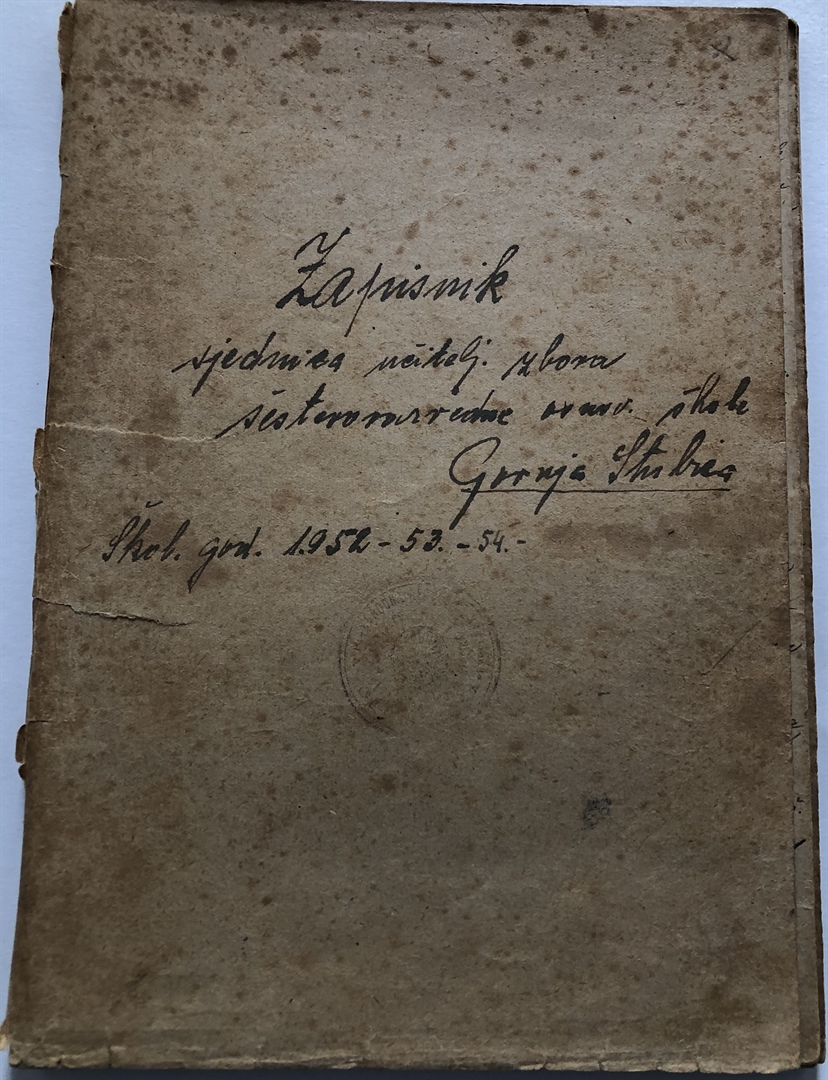 Zapisnik
sjednica učitelj. zbora
šesterorazredne osnov. škole
Gornja Stubica
Škol. god. 1952-53.-54.-